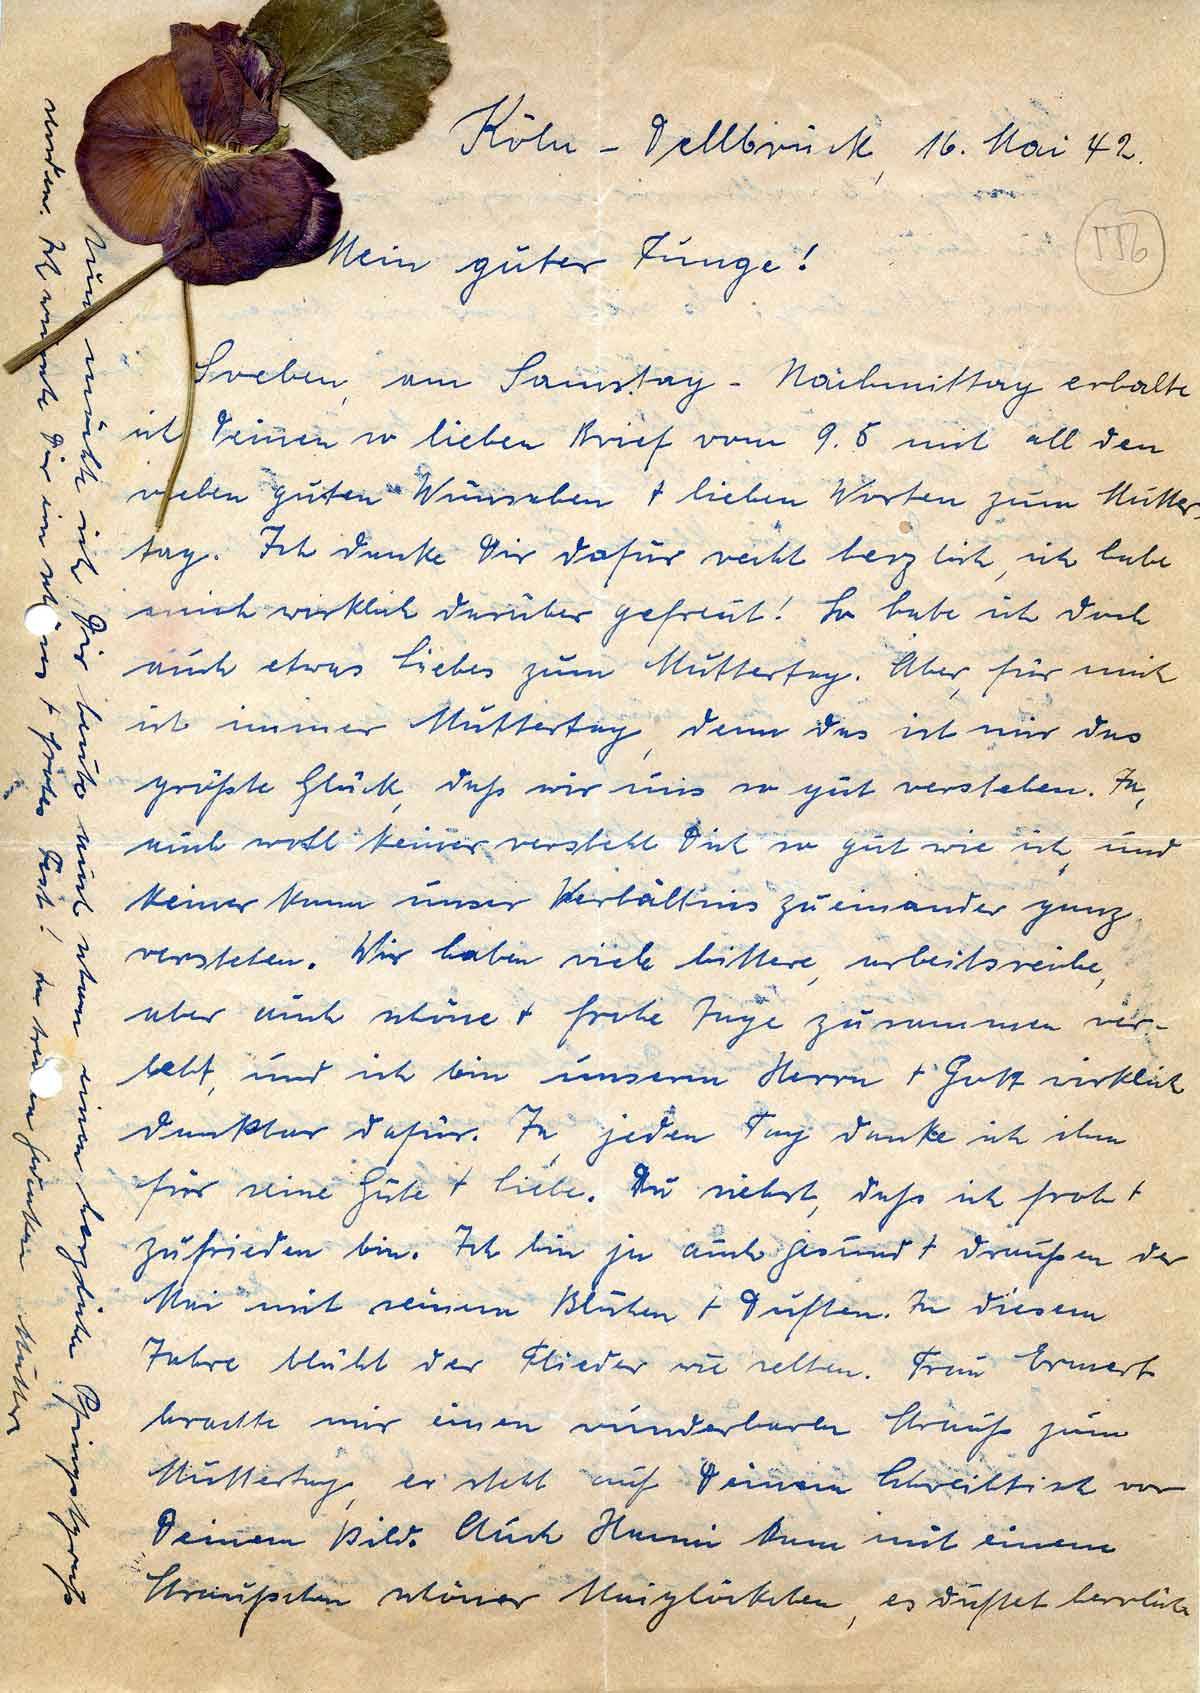 Köln - Dellbrück, 16. Mai 42.
Mein guter Junge!
Soeben, am Samstag - Nachmittag erhalte
ich Deinen so lieben Brief vom 9.5 mit all den
vielen guten Wünschen + lieben Worten zum Mutter-
tag. Ich danke Dir dafür recht herzlich, ich habe
mich wirklich darüber gefreut! So habe ich doch
auch etwas Liebes zum Muttertag. Aber, für mich
ist immer Muttertag, denn das ist mir das
größte Glück, daß wir uns so gut verstehen. Ja,
auch wohl keiner versteht Dich so gut wie ich, und
keiner kann unser Verhältnis zueinander ganz
verstehen. Wir haben viele bittere, arbeitsreiche,
aber auch schöne + frohe Tage zusammen ver-
lebt, und ich bin unserm Herrn + Gott wirklich
dankbar dafür. Ja, jeden Tag danke ich ihm
für seine Güte + Liebe. Du siehst, daß ich froh +
zufrieden bin. Ich bin ja auch gesund + draußen der
Mai mit seinem Blühen + Duften. In diesem
Jahre blüht der Flieder wie selten. Frau Ermert
brachte mir einen wunderbaren Strauß zum
Muttertag, er steht auf Deinem Schreibtisch vor
Deinem Bild. Auch Hanni kam mit einem
Sträußchen schöner Maiglöckchen, es duftet herrlich
Nun möchte ich Dir heute auch schon einen herzlichen Pfingstgruß
senden. Ich wünsche Dir ein schönes + frohes Fest! In treuem Gedenken Mutter